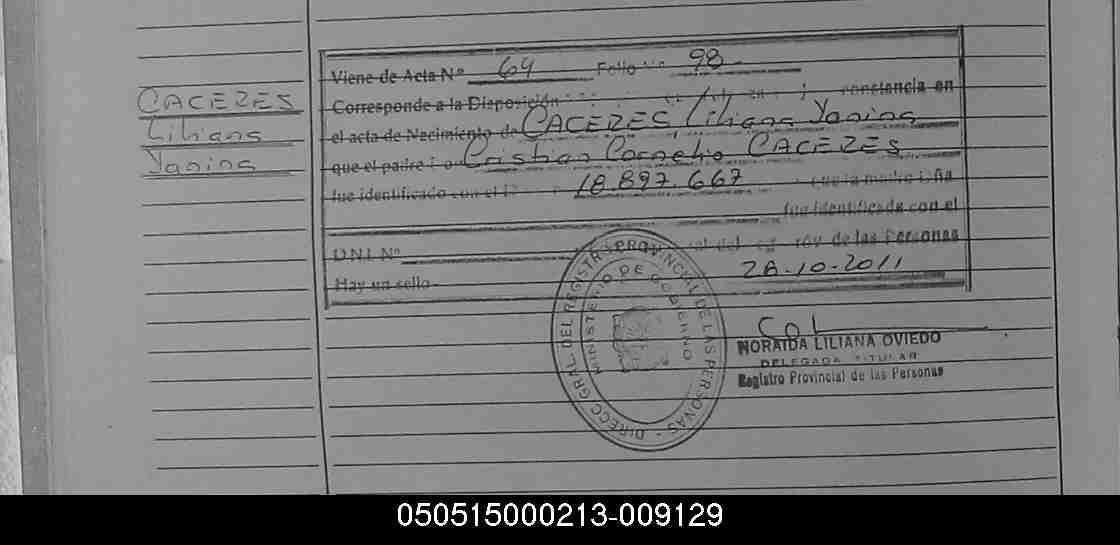 CACERES
Liliana
Yanina
Viene de Acta Nº 64 Folio Nº 98
Corresponde a la Disposición constancia en
el acta de Nacimiento de CACERES Liliana Yanina
que el padre Cristian Cornelio CACERES
fue identificado con el 18.897.667 que la madre Dña
fue identificada con el
D.N.I. Nº de las Personas
Hay un sello. 28-10-2011
DIRECC GRAL. DEL REGISTRO PROVINCIAL DE LAS PERSONAS
MINISTERIO DE GOBIERNO
NORAIDA LILIANA OVIEDO
DELEGADA TITULAR
Registro Provincial de las Personas
050515000213-009129